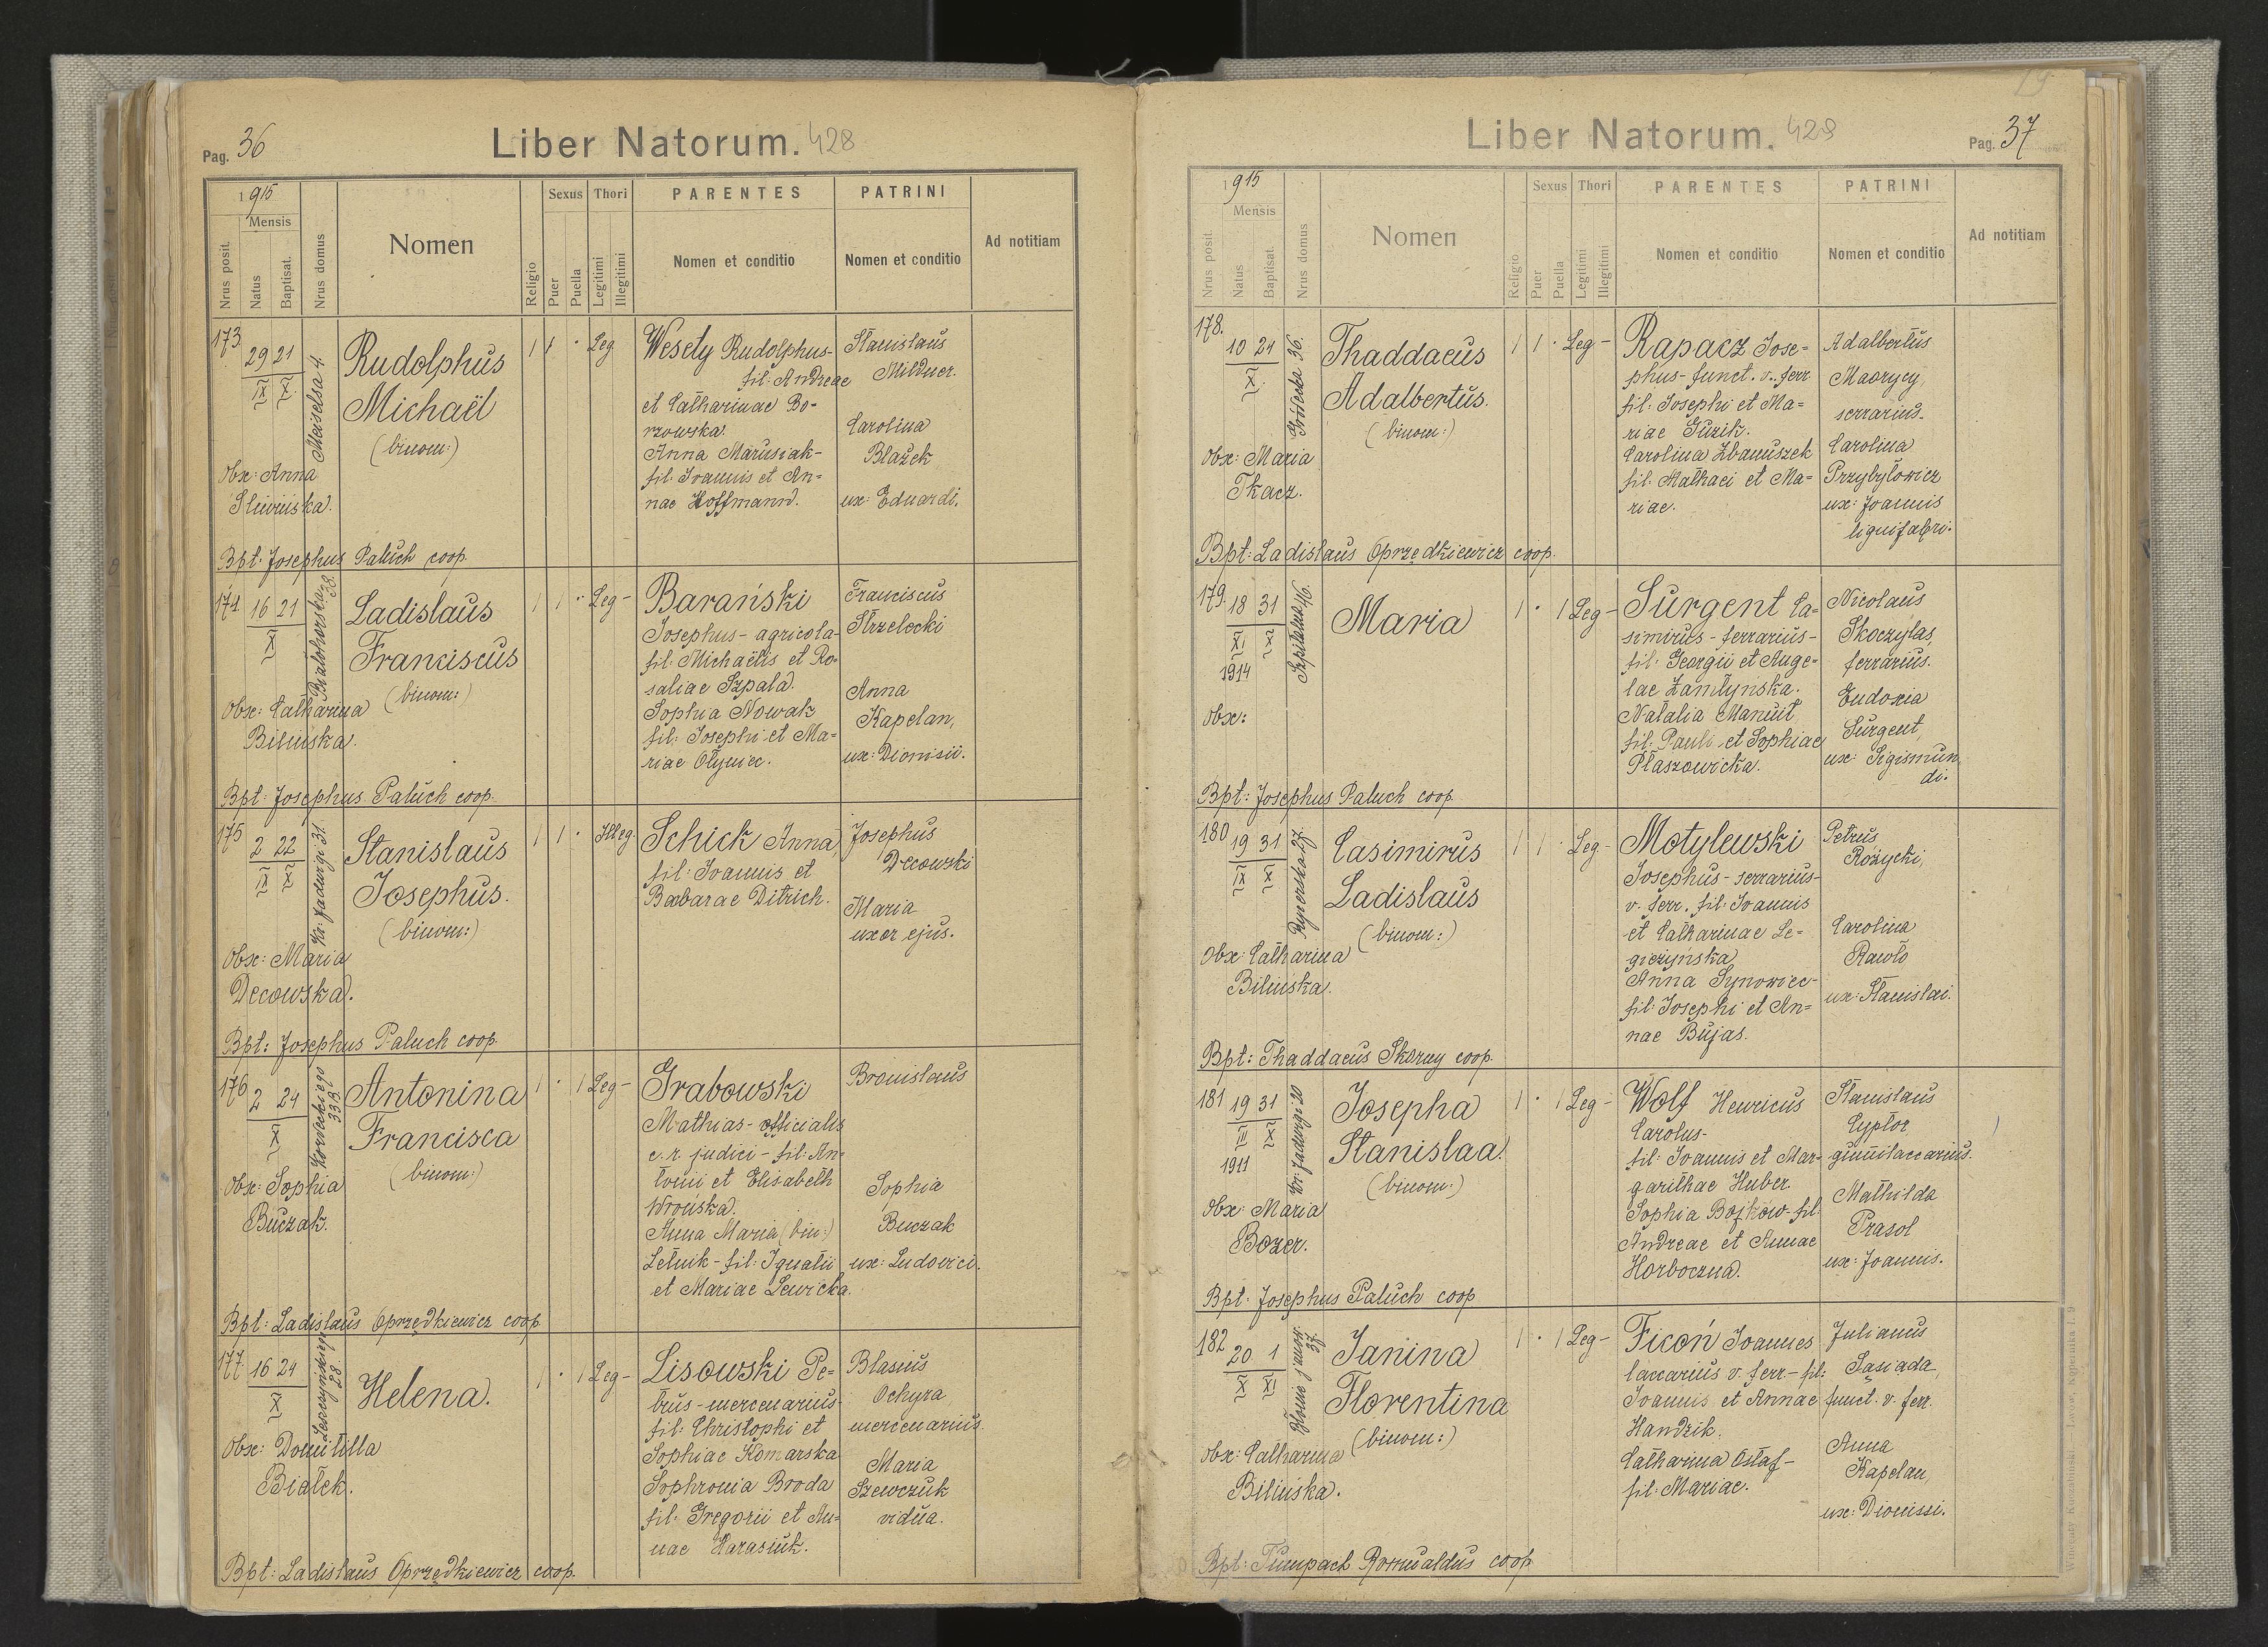 Pag. 36
Liber Natorum. 428
1915
Mensis
Nrus posit.
Natus
Baptisat.
Nrus domus
Nomen
Religio
Sexus
Puer
Puella
Thori
Legitimi
Illegitimi
PARENTES
Nomen et conditio
PATRINI
Nomen et conditio
Ad notitiam
173
29 21
IX X
Meiselsa 4.
Rudolphus
Michaël
(binom:)
Obx: Anna
Śliwińska.
1 1 · Leg
Wesely Rudolphus-
fil: Andreae
et Catharinae Bo-
rzowska.
Anna Marusiak-
fil: Joannis et An-
nae Hoffmann.
Stanislaus
Mildner.
Carolina
Blažek
ux: Eduardi.
Bpt: Josephus Paluch coop.
174 16 21
X
Białohorska 38.
Ladislaus
Franciscus
(binom:)
Obx: Catharina
Bilińska.
1 1 · Leg-
Barański
Josephus- agricola-
fil: Michaëlis et Ro-
saliae Szpala.
Sophia Nowak
fil: Josephi et Ma-
riae Ołyniec.
Franciscus
Strzelecki
Anna
Kapelan,
ux: Dionisii.
Bpt: Josephus Paluch coop.
175 2 22
IX X
Kr: Jadwigi 31.
Stanislaus
Josephus.
(binom:)
Obx: Maria
Decowska.
1 1 · Illeg.
Schick Anna,
fil: Joannis et
Barbarae Ditrich.
Josephus
Decowski
Maria
uxor ejus.
Bpt: Josephus Paluch coop.
176 2 24
X
Kordeckiego 33
Antonina
Francisca
(binom:)
Obx: Sophia
Buczak.
1 · 1 Leg-
Grabowski
Mathias- officialis
c. r. judici- fil: An-
tonii et Elisabeth
Wrońska.
Anna Maria (bin:)
Letnik- fil: Ignatii
et Mariae Lewicka.
Bronislaus
Sophia
Buczak
ux: Ludovici.
Bpt: Ladislaus Oprzędkiewicz coop.
177. 16 24
X
28.
Helena.
Obx: Domitilla
Białek.
1 · 1 Leg-
Lisowski Pe-
trus- mercenarius-
fil: Christophi et
Sophiae Komarska
Sophronia Broda
fil: Gregorii et An-
nae Harasiuk.
Blasius
Ochyra
mercenarius.
Maria
Szewczuk
vidua.
Bpt: Ladislaus Oprzędkiewicz coop.
19
Liber Natorum. 429
Pag. 37
1915
Mensis
Nrus posit.
Natus
Baptisat.
Nrus domus
Nomen
Religio
Sexus
Puer
Puella
Thori
Legitimi
Illegitimi
PARENTES
Nomen et conditio
PATRINI
Nomen et conditio
Ad notitiam
178.
10 21
X.
Gródecka 36.
Thaddaeus
Adalbertus.
(binom:)
Obx: Maria
Tkacz.
1 1 · Leg-
Rapacz Jose-
phus- funct. v. ferr
fil: Josephi et Ma-
riae Guzik.
Carolina Zbanuszek
fil: Mathaei et Ma-
riae.
Adalbertus
Maorycy,
serrarius.
Carolina
Przybyłowicz
ux: Joannis
lignifabri.
Bpt: Ladislaus Oprzędkiewicz coop.
179. 18 31
XI X
1914
Szpitalna 46.
Maria
Obx:
1 · 1 Leg-
Surgent Ca-
simirus- ferrarius-
fil: Georgii et Ange-
lae Zamłyńska.
Natalia Manuit,
fil: Pauli et Sophiae
Płaszowicka.
Nicolaus
Skoczylas
ferrarius.
Eudoxia
Surgent,
ux: Sigismun
di.
Bpt: Josephus Paluch coop.
180 19 31
IX X
27.
Casimirus
Ladislaus
(binom:)
Obx: Catharina
Bilińska.
1 1 · Leg-
Motylewski
Josephus- serrarius-
v. ferr. fil: Joannis
et Catharinae Le-
giczyńska
Anna Synowiec-
fil: Josephi et An-
nae Bujas.
Petrus
Różycki,
Carolina
Rawło
ux: Stanislai.
Bpt: Thaddaeus Skorny coop.
181 19 31
III X
1911
Kr: Jadwigi 20
Josepha
Stanislaa.
(binom:)
Obx: Maria
Bozer.
1 · 1 Leg-
Wolf Henricus
Carolus-
fil: Joannis et Mar-
garithae Huber.
Sophia Bojków- fil:
Andreae et Annae
Horboczna.
Stanislaus
Cyptor
gumilaccarius.
Mathilda
Prasol
ux: Joannis.
Bpt: Josephus Paluch coop
182
20 1
X XI
37.
Janina
Florentina
(binom:)
Obx: Catharina
Bilińska.
1 · 1 Leg-
Ficoń Joannes
laccarius v. ferr- fil:
Joannis et Annae
Handzik.
Catharina Ostaf-
fil: Mariae.
Julianus
Sasiada,
funct. v. ferr.
Anna
Kapelan,
ux: Dionissi.
Bpt: Tumpach Romualdus coop